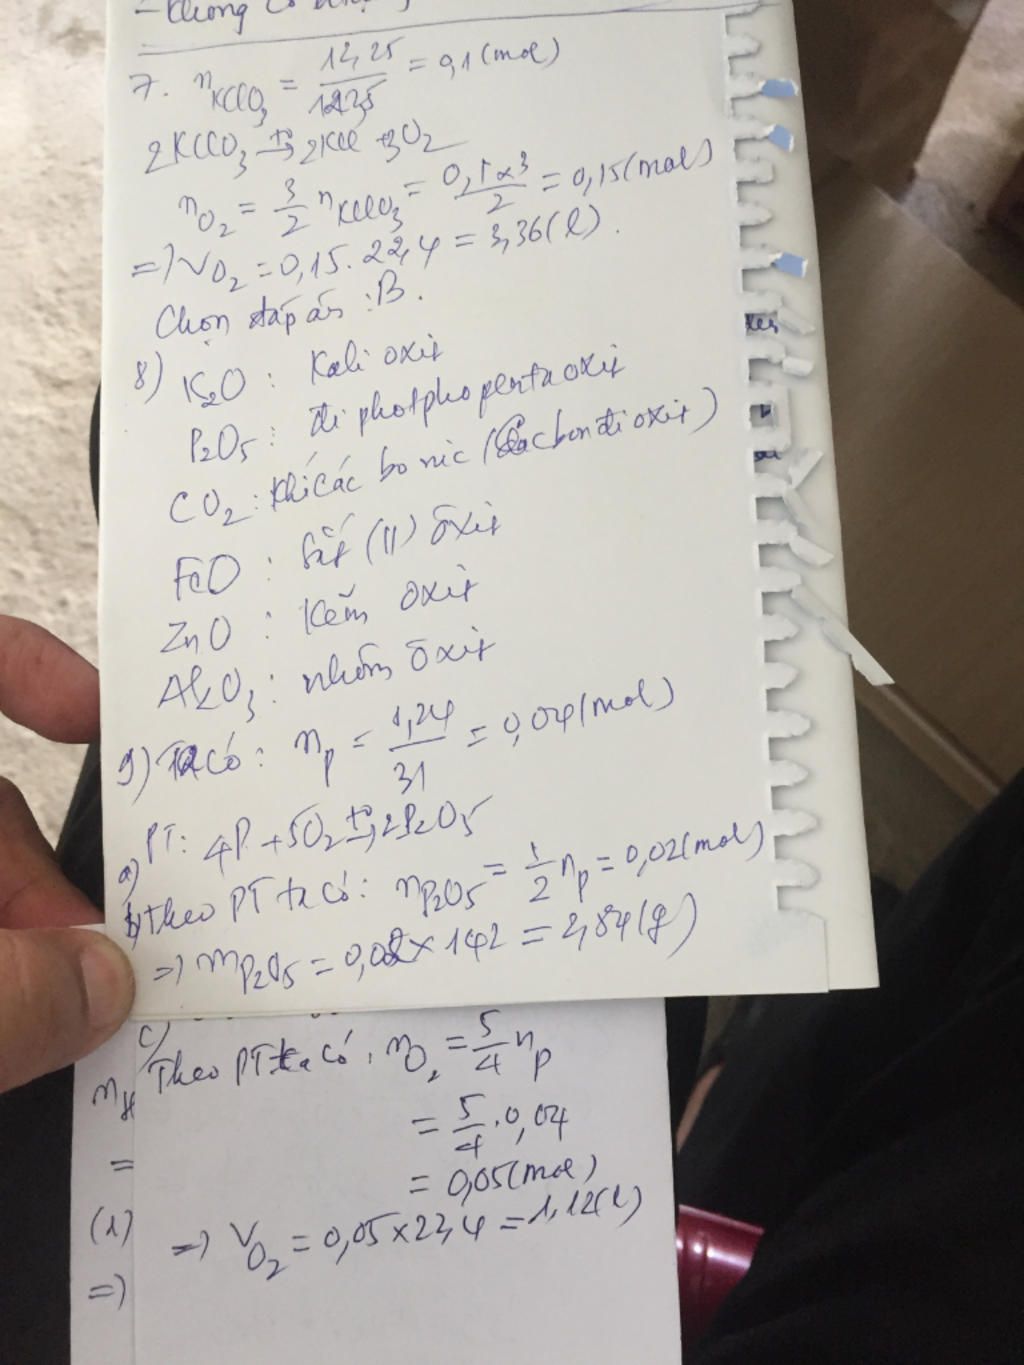 - không có
7. nKClO3 = 12,25/122,5 = 0,1 (mol)
2KClO3 t°→ 2KCl + 3O2
nO2 = 3/2 nKClO3 = 0,1 x 3/2 = 0,15 (mol)
=> VO2 = 0,15. 22,4 = 3,36 (l).
Chọn đáp án : B.
8) K2O : Kali oxit
P2O5 : đi photpho penta oxit
CO2 : Khí các bo nic (Các bon đi oxit)
FeO : Sắt (II) ôxit
ZnO : Kẽm oxit
Al2O3 : nhôm ôxit
9) Ta có : nP = 1,24/31 = 0,04 (mol)
a) PT: 4P + 5O2 t°→ 2P2O5
b) Theo PT ta có : nP2O5 = 1/2 nP = 0,02 (mol)
=> mP2O5 = 0,02 x 142 = 2,84 (g)
c)
Theo PT ta có : nO2 = 5/4 nP
= 5/4 . 0,04
= 0,05 (mol)
=> VO2 = 0,05 x 22,4 = 1,12 (l)
=
(1)
=>